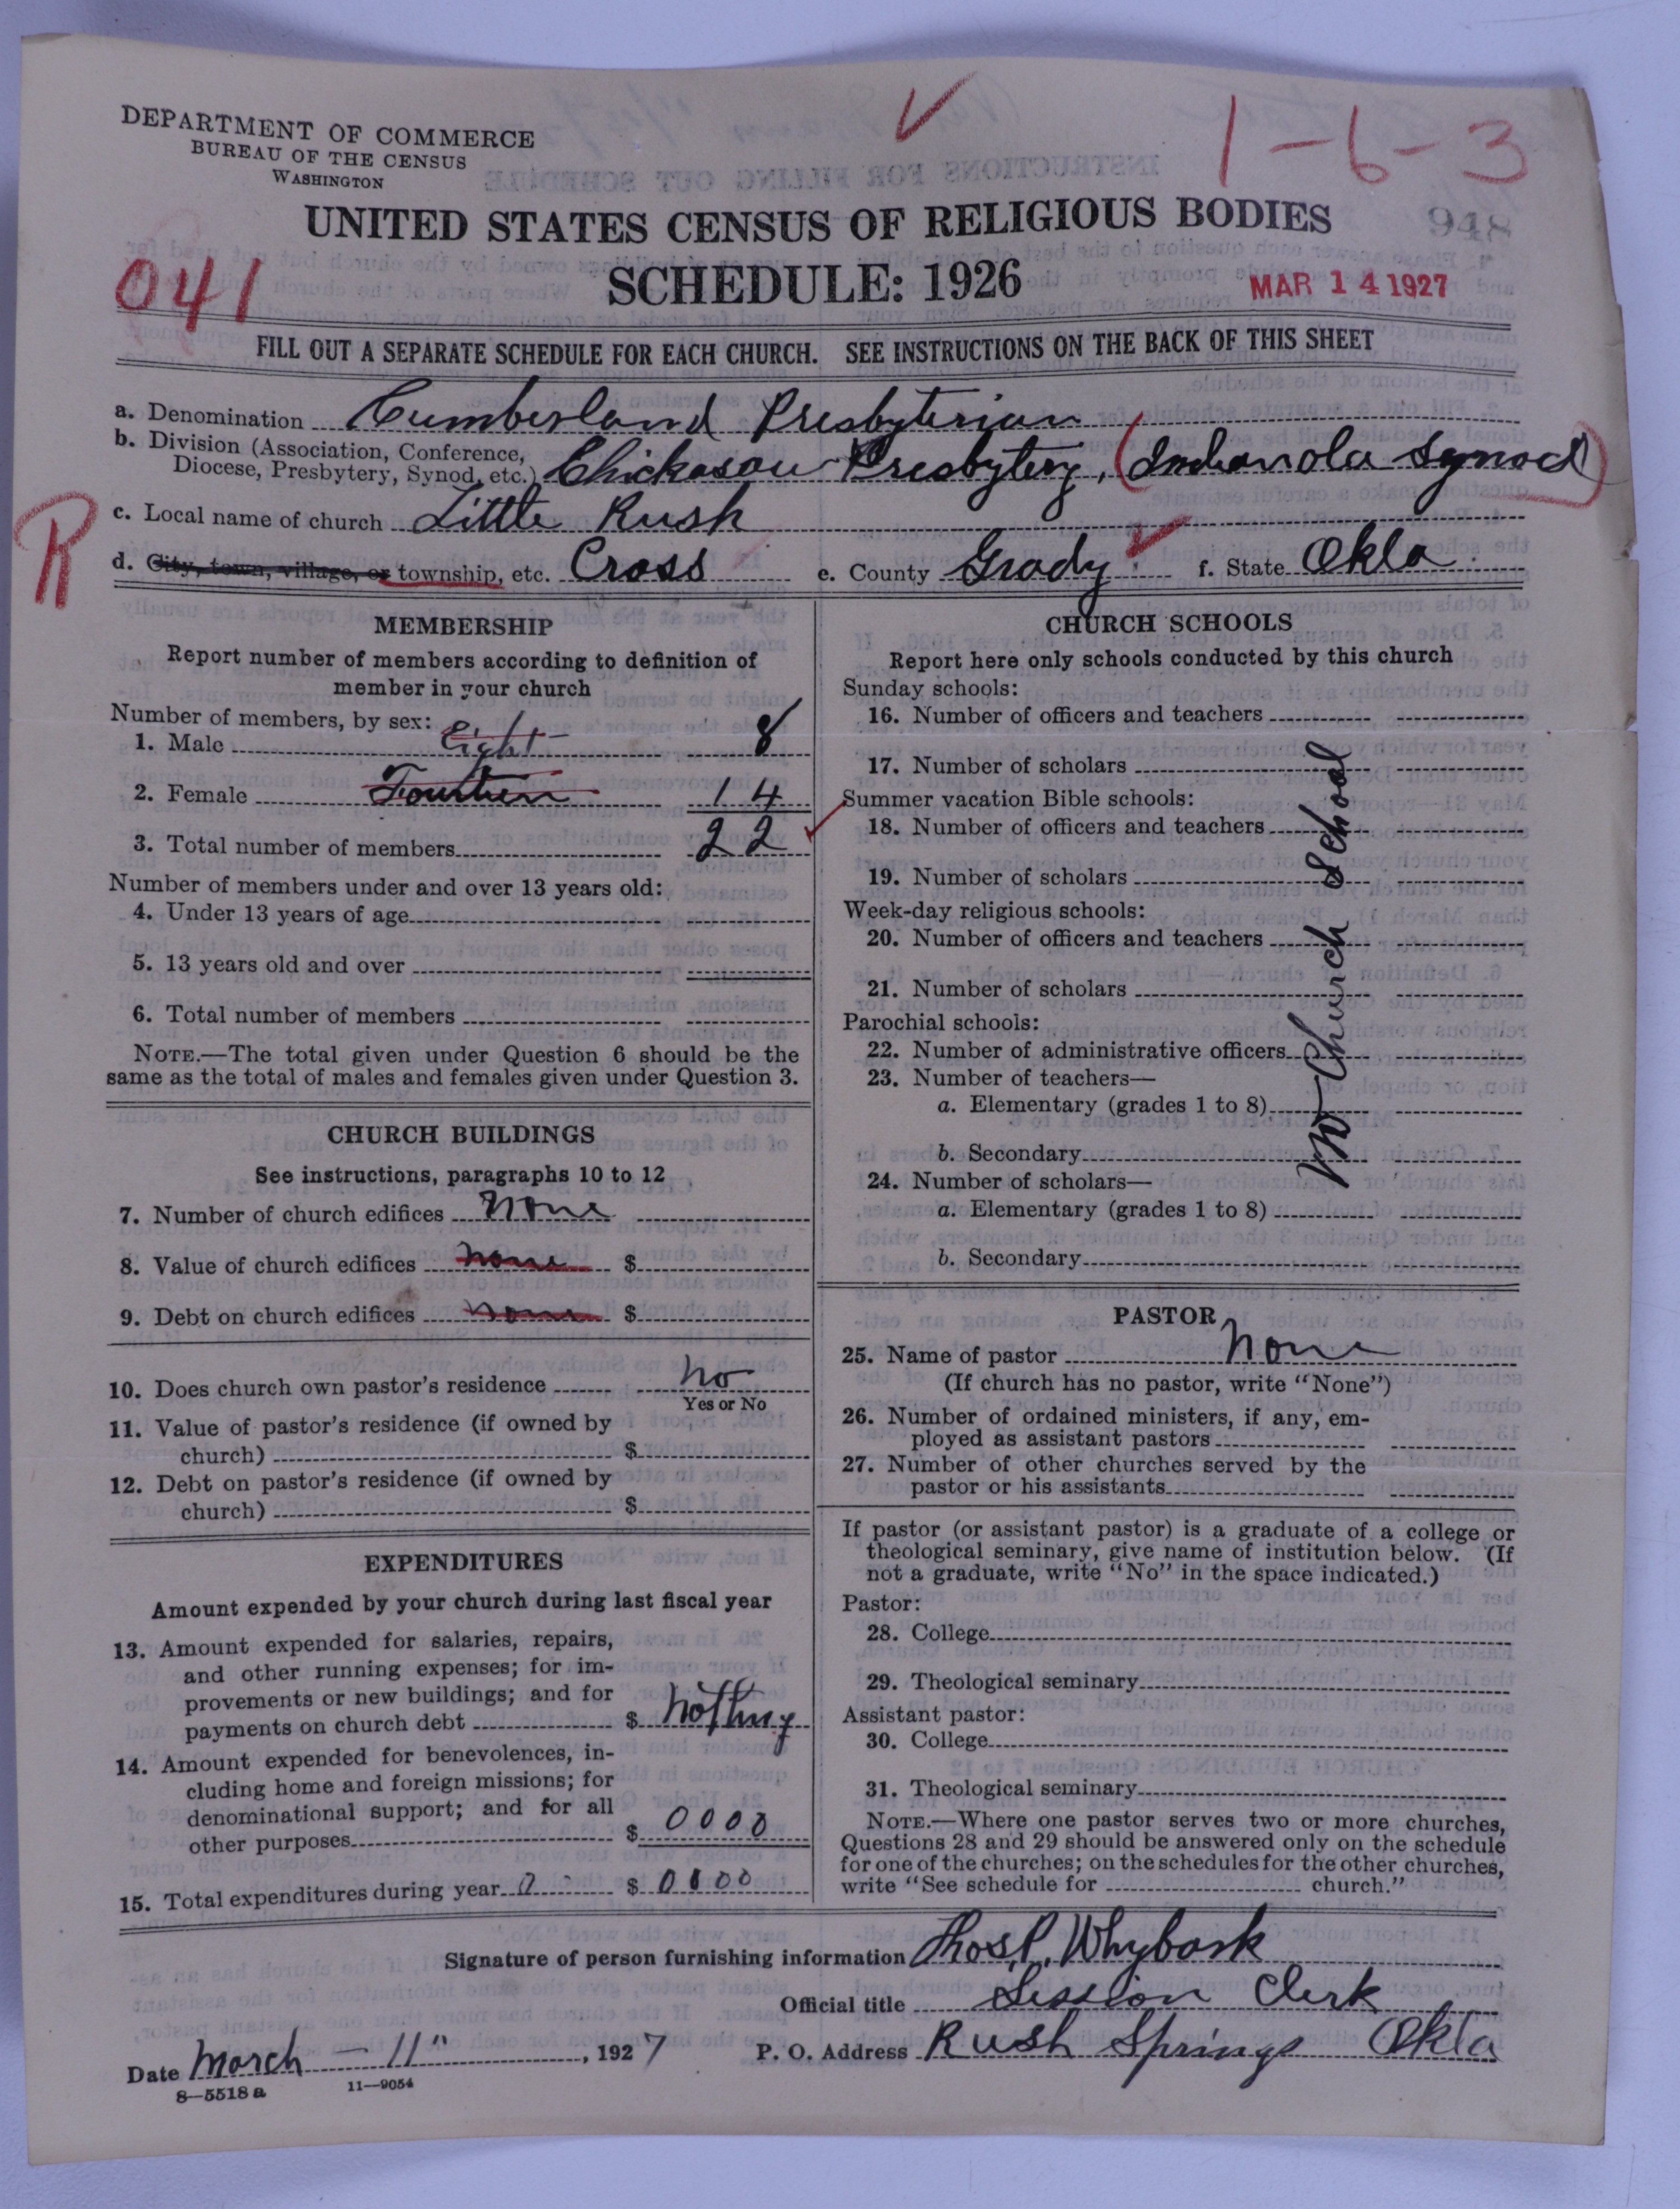 DEPARTMENT OF COMMERCE
BUREAU OF THE CENSUS
WASHINGTON
1-6-3
UNITED STATES CENSUS OF RELIGIOUS BODIES
948
041
SCHEDULE: 1926
MAR 14 1927
FILL OUT A SEPARATE SCHEDULE FOR EACH CHURCH. SEE INSTRUCTIONS ON THE BACK OF THIS SHEET
a. Denomination Cumberland Presbyterian
b. Division (Association, Conference,
Diocese, Presbytery, Synod, etc.) Chickasaw Presbytery, (Indianola Synod)
R
c. Local name of church Little Rush
d. City, town, village, or township, etc. Cross e. County Grady f. State Okla.
MEMBERSHIP
Report number of members according to definition of
member in your church
Number of members, by sex:
1. Male Eight 8
2. Female Fourteen 14
3. Total number of members 22
Number of members under and over 13 years old:
4. Under 13 years of age
5. 13 years old and over
6. Total number of members
NOTE.—The total given under Question 6 should be the
same as the total of males and females given under Question 3.
CHURCH BUILDINGS
See instructions, paragraphs 10 to 12
7. Number of church edifices None
8. Value of church edifices none $
9. Debt on church edifices none $
10. Does church own pastor's residence No
Yes or No
11. Value of pastor's residence (if owned by
church) $
12. Debt on pastor's residence (if owned by
church) $
EXPENDITURES
Amount expended by your church during last fiscal year
13. Amount expended for salaries, repairs,
and other running expenses; for im-
provements or new buildings; and for
payments on church debt $ Nothing
14. Amount expended for benevolences, in-
cluding home and foreign missions; for
denominational support; and for all
other purposes $ 0000
15. Total expenditures during year 0 $ 0000
CHURCH SCHOOLS
Report here only schools conducted by this church
Sunday schools:
16. Number of officers and teachers
17. Number of scholars
Summer vacation Bible schools:
18. Number of officers and teachers
19. Number of scholars
Week-day religious schools:
20. Number of officers and teachers
21. Number of scholars
Parochial schools:
22. Number of administrative officers
23. Number of teachers—
a. Elementary (grades 1 to 8)
b. Secondary
24. Number of scholars—
a. Elementary (grades 1 to 8)
b. Secondary
No Church School
PASTOR
25. Name of pastor None
(If church has no pastor, write "None")
26. Number of ordained ministers, if any, em-
ployed as assistant pastors
27. Number of other churches served by the
pastor or his assistants
If pastor (or assistant pastor) is a graduate of a college or
theological seminary, give name of institution below. (If
not a graduate, write "No" in the space indicated.)
Pastor:
28. College
29. Theological seminary
Assistant pastor:
30. College
31. Theological seminary
NOTE.—Where one pastor serves two or more churches,
Questions 28 and 29 should be answered only on the schedule
for one of the churches; on the schedules for the other churches,
write "See schedule for church."
Signature of person furnishing information Thos. P. Whybark
Official title Session Clerk
Date March - 11", 1927 P. O. Address Rush Springs Okla
8—5518 a 11—9054